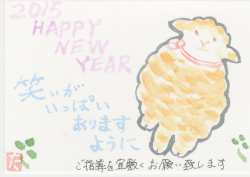 2015
HAPPY
NEW
YEAR
笑いが
いっぱい
あります
ように
ご指導を宜敷くお願い致します
た